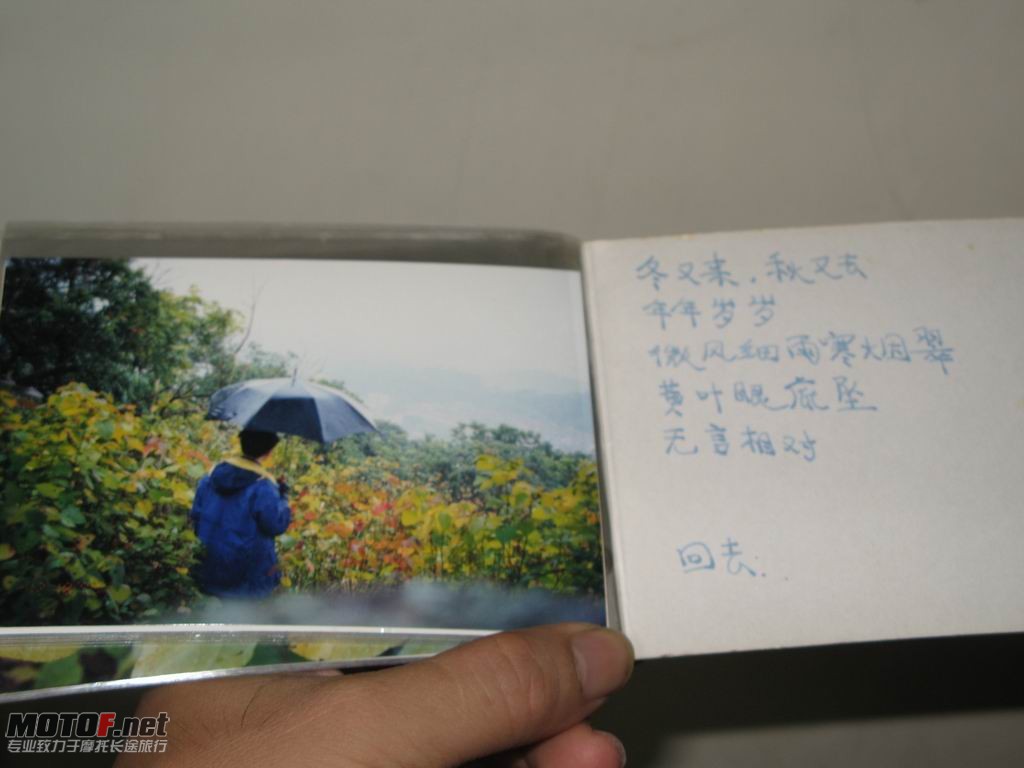 冬又来.秋又去
年年岁岁
微风细雨寒烟翠
黄叶眼底坠
无言相对
回去.
MOTOF.net
专业致力于摩托长途旅行